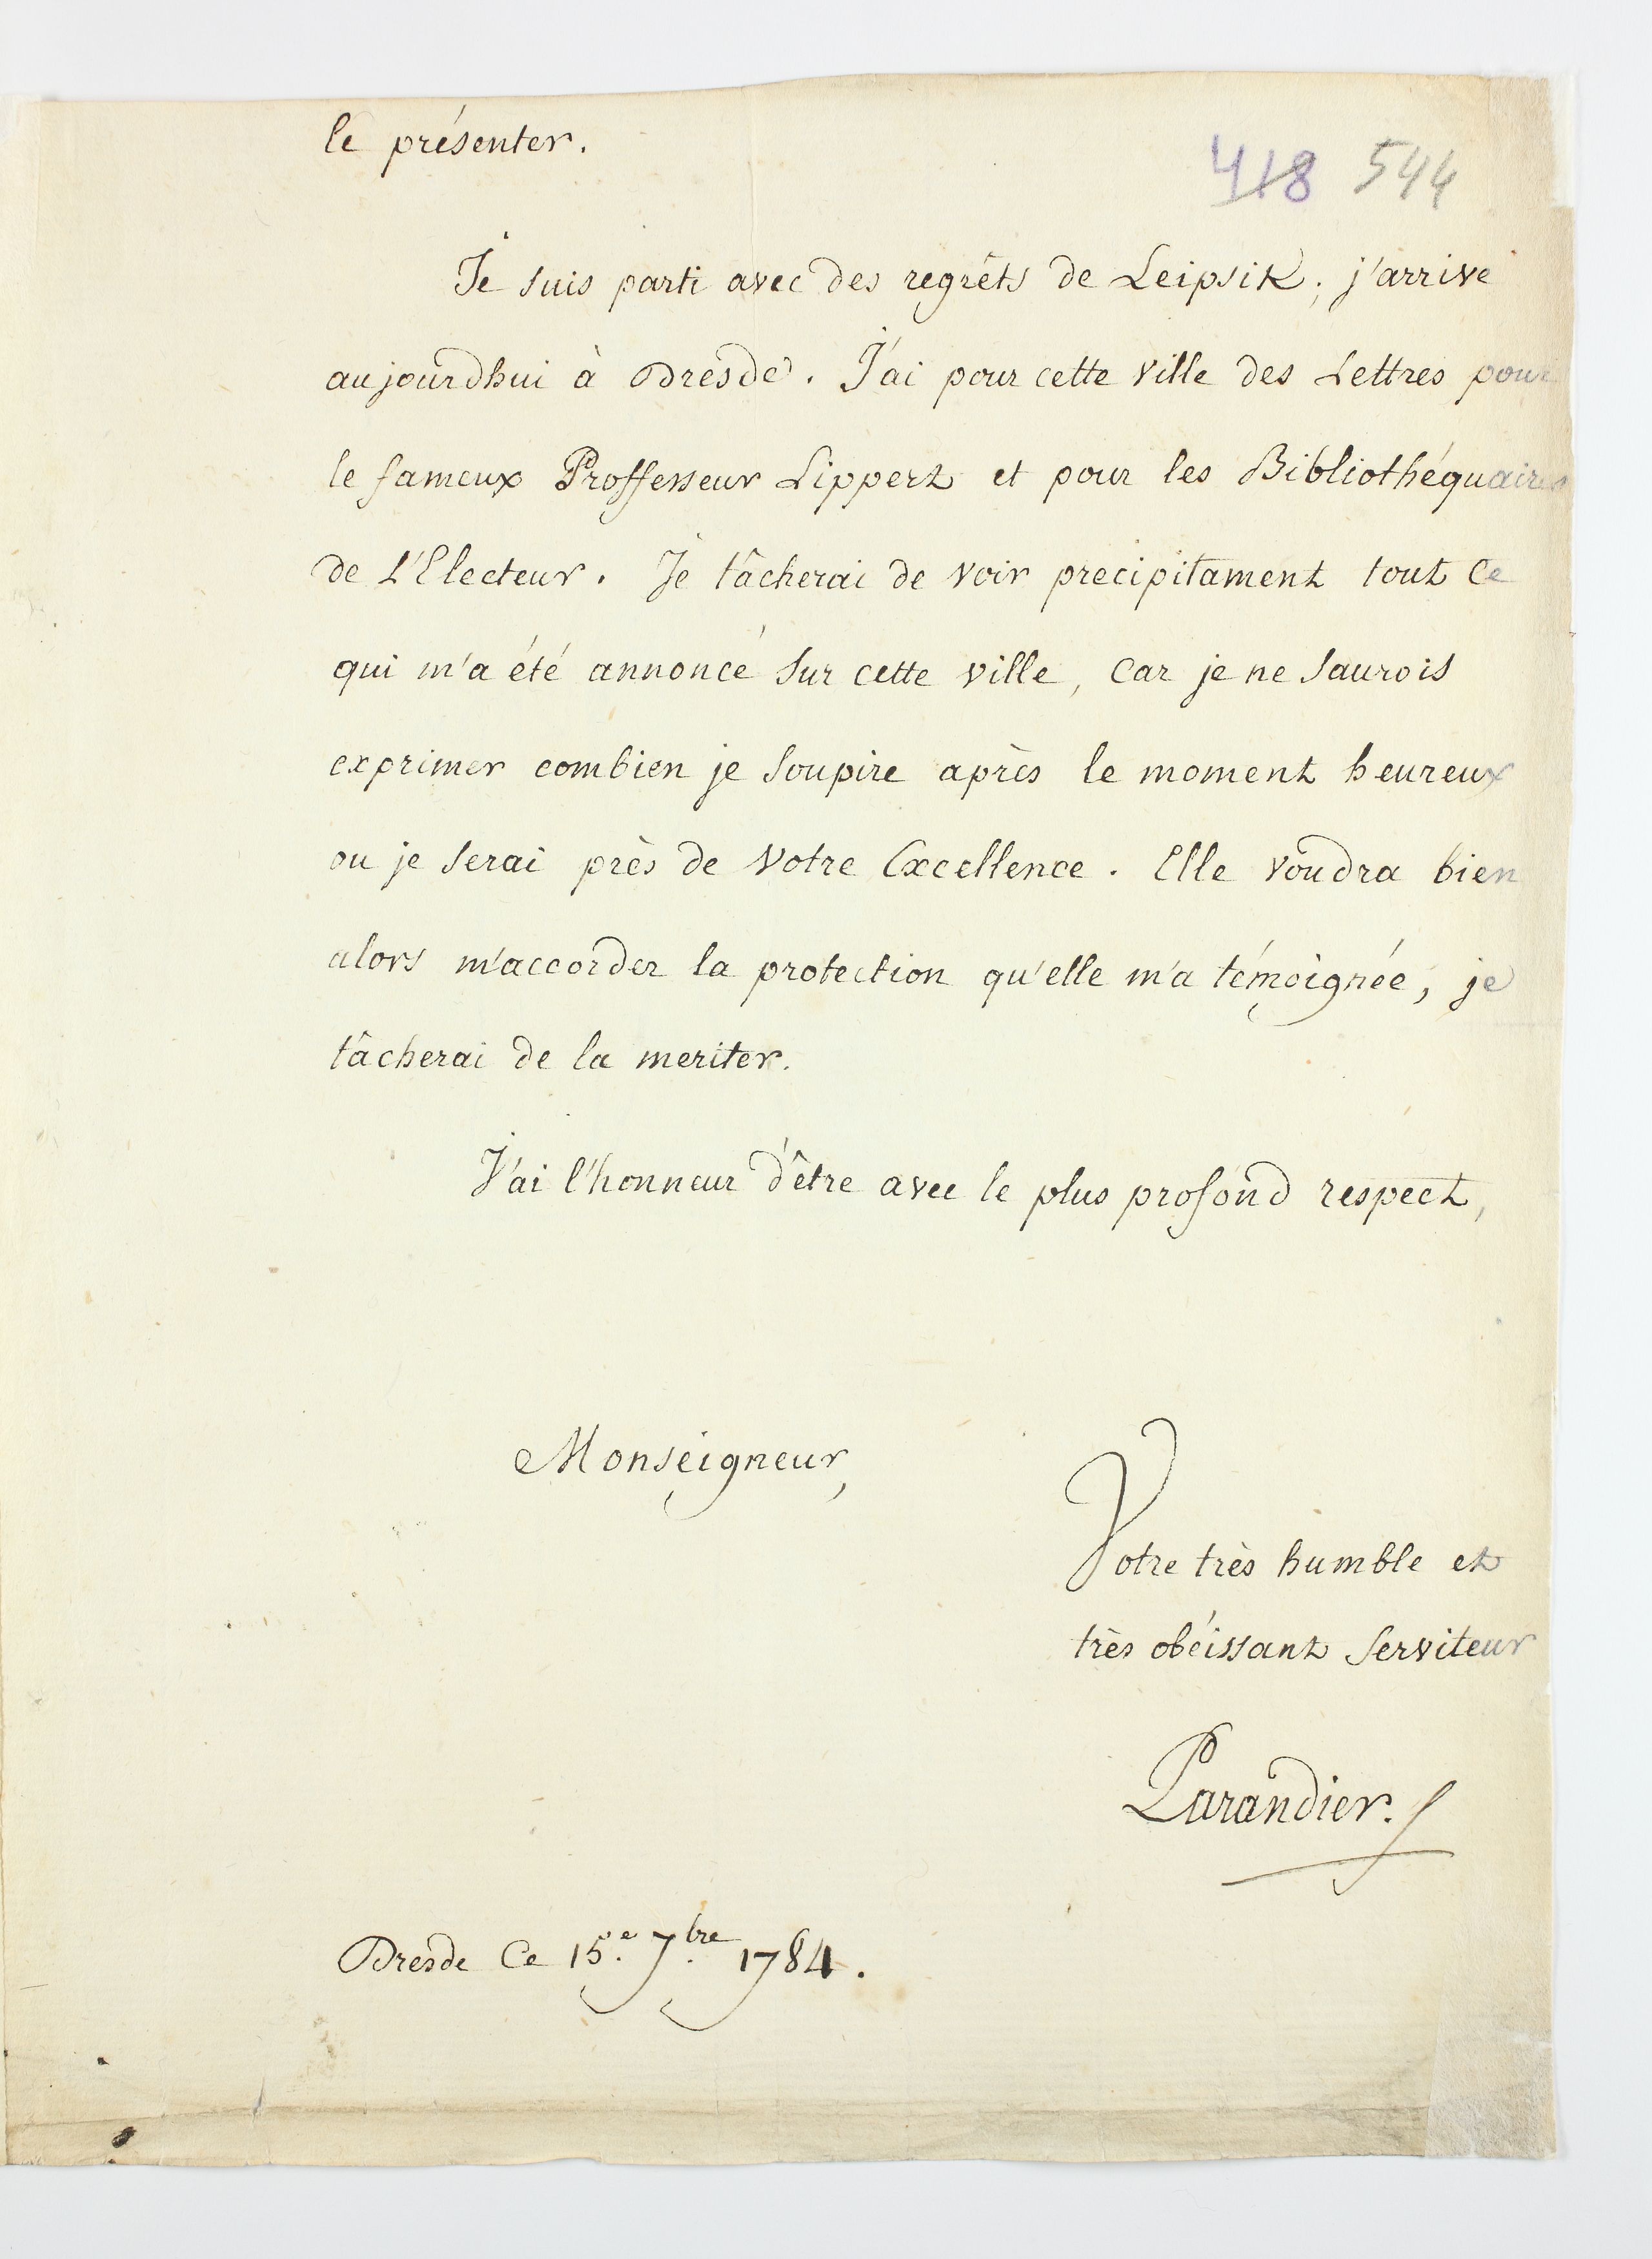 le présenter.
418 544
Je suis parti avec des regrêts de Leipsik; j'arrive
aujourdhui à Dresde. J'ai pour cette ville des Lettres pour
le fameux Proffesseur Lippert et pour les Bibliothéquaires
de L'Electeur. Je tâcherai de voir precipitament tout ce
qui m'a été annoncé sur cette ville, car je ne saurois
exprimer combien je soupire après le moment heureux
ou je serai près de Votre Excellence. Elle voudra bien
alors m'accorder la protection qu'elle m'a témoignée, je
tâcherai de la meriter.
J'ai l'honneur d'être avec le plus profond respect,
Monseigneur,
Votre très humble et
très obéissant serviteur
Parandier.
Dresde Ce 15.e 7.bre 1784.